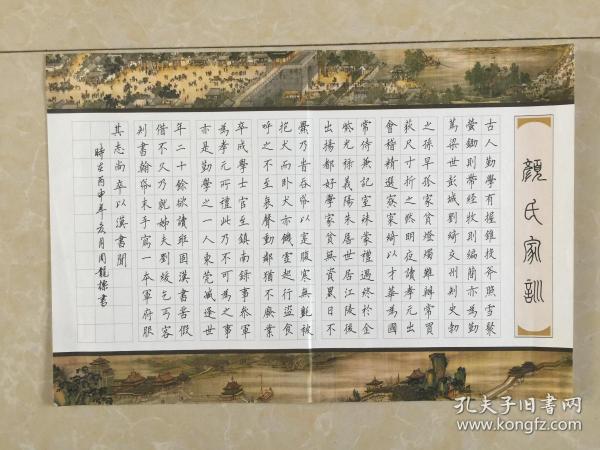 顏氏家訓
古人勤學有握錐投斧照雪聚
螢鋤則帶經牧則編簡亦為勤
篤梁世彭城劉綺交州刺史勃
之孫早孤家貧燈燭難辦常買
荻尺寸折之然明夜讀孝元出
會稽精選寀寮綺以才華為國
常侍兼記室殊蒙禮遇終於金
紫光祿義陽朱詹世居江陵後
出揚都好學家貧無資累日不
爨乃旹吞帋以實腹寒無氈被
抱犬而卧犬亦飢虛起行盜食
呼之不至哀聲動鄰猶不廢業
卒成學士官至鎮南錄事參軍
為孝元所禮此乃不可為之事
亦是勤學之一人東莞臧逢世
年二十餘欲讀班固漢書苦假
借不久乃就姊夫劉緩乞丐客
刺書翰帋末手寫一本軍府服
其志尚卒以漢書聞
時在丙申年亥月周龍標書
孔夫子旧书网
www.kongfz.com